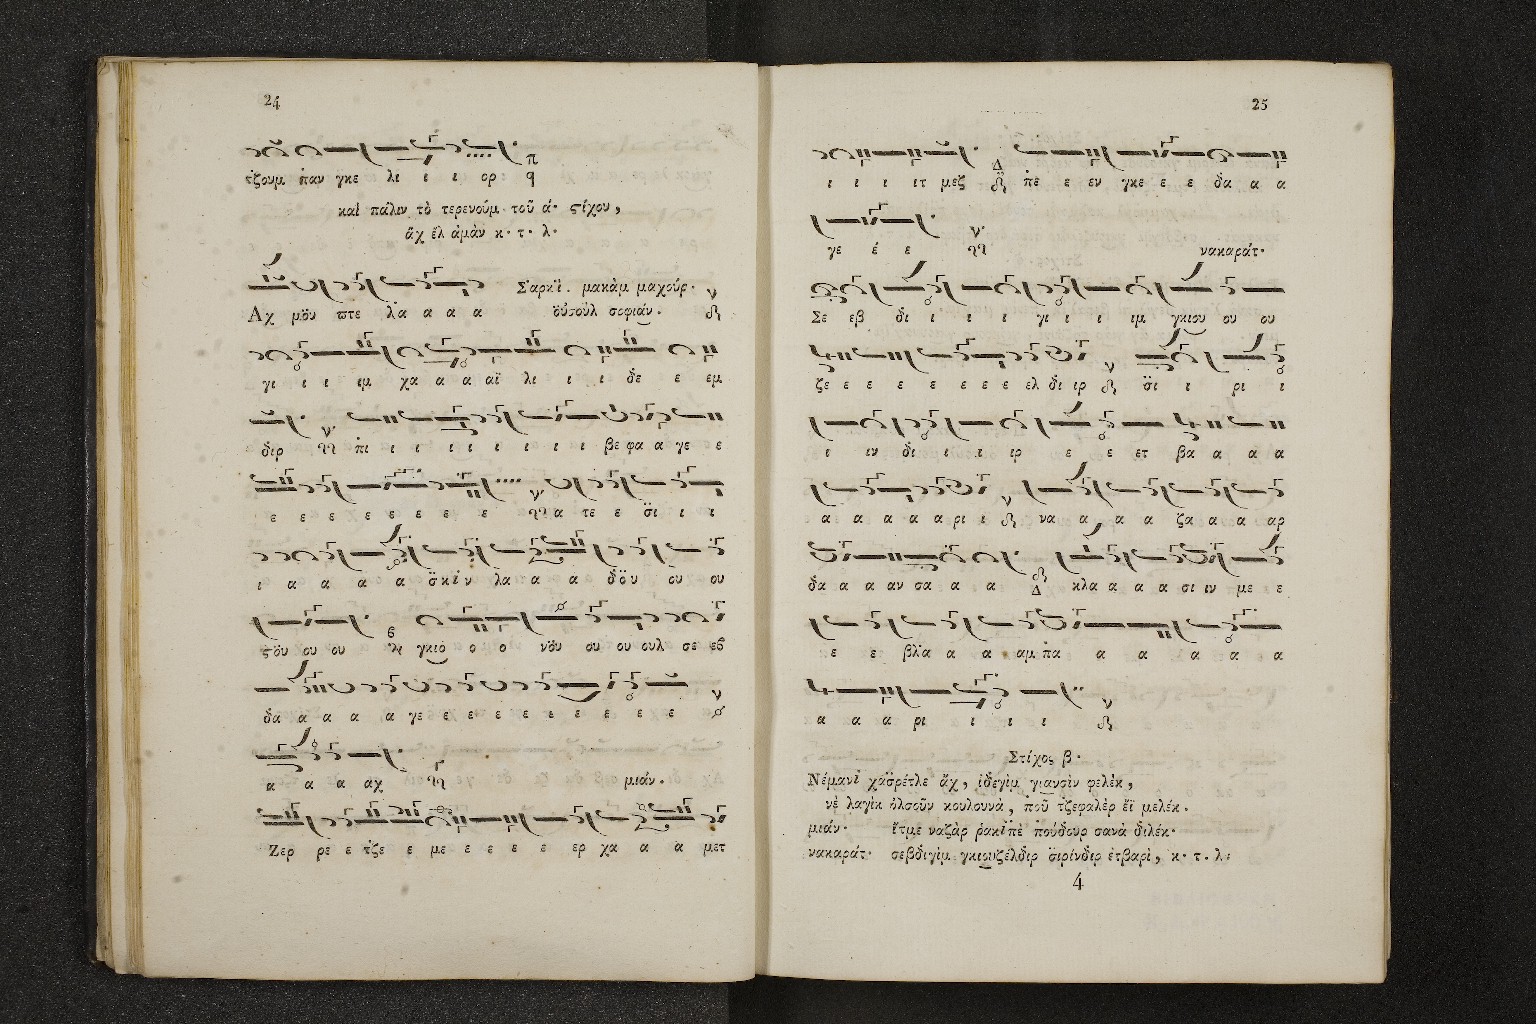 24
τζουμ παν γκε λι ι ι ορ
καὶ πάλιν τὸ τερενούμ τοῦ ά· ϛίχου,
ἄχ ἔλ ἀμὰν κ· τ· λ·
Σαρκί. μακὰμ μαχούρ·
Αχ μου ϖτε λα α α α οὐσοὺλ σοφιάν.
γι ι ι ιμ χα α α αϊ λι ι ι δε ε εμ
διρ πι ι ι ι ι ι ι ι ι βε φα α γε ε
ε ε ε ε ε ε ε ε ε α τε ε σι ι ι
ι α α α α σκιν λα α α δου ου ου
ϛου ου ου γκιο ο ο νου ου ου ουλ σε εβ
δα α α α α γε ε ε ε ε ε ε ε ε ε
α α α αχ μιάν.
Ζερ ρε ε τζε ε με ε ε ε ε ερ χα α α μετ
25
ι ι ι ιτ μεζ πε ε εν γκε ε ε δα α α
γε έ ε νακαράτ·
Σε εβ δι ι ι ι γι ι ι ιμ γκιου ου ου
ζε ε ε ε ε ε ε ε ε ελ δι ιρ σι ι ρι ι
ι ιν δι ι ι ιρ ε ε ετ βα α α α
α α α α α ρι ι να α α α ζα α α αρ
δα α α αν σα α α κλα α α α σι ιν με ε
ε ε βλα α α αμ πα α α α α α
α α α ρι ι ι ι
Στίχος β·
Νέμανὶ χασρέτλε ἄχ, ἰδεγὶμ γιανσὶν φελέκ,
νὲ λαγὶκ ὀλσοῦν κουλουνὰ, ποῦ τζεφαλὲρ ἔϊ μελέκ.
μιάν· ἔτμε ναζὰρ ῥακὶπὲ πούδουρ σανὰ διλέκ·
νακαράτ· σεβδιγὶμ γκιουζέλδιρ σιρίνδιρ ἐτβαρὶ, κ· τ. λ.
4